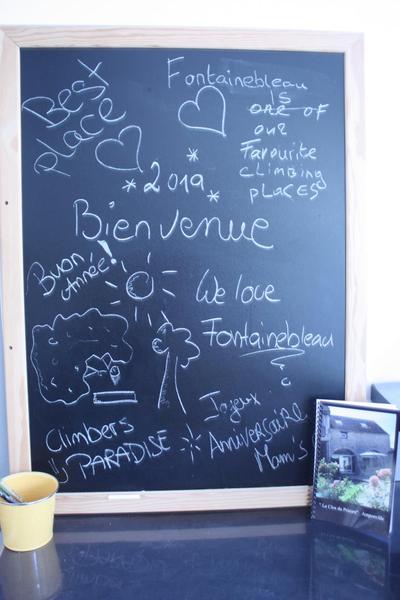 Best
place
Fontainebleau
is
one of
our
Favourite
climbing
places
2019
Bienvenue
Buon
Année!
We love
Fontainebleau
Climbers
PARADISE
Joyeux
Anniversaire
Mam's
"Le Clos du Prieuré" Amponville